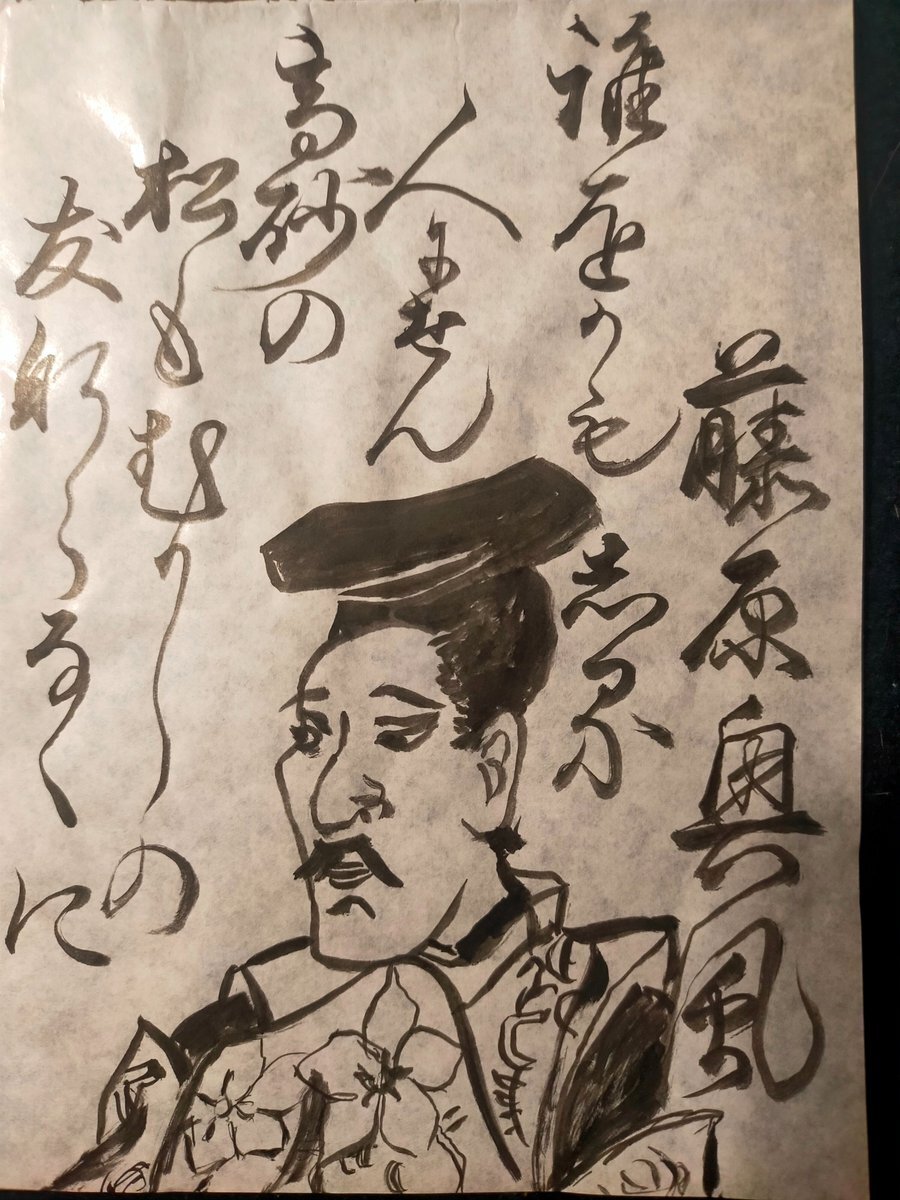 藤原興風
誰をかも志る
人にせん
高砂の
松もむかしの
友ならなくに